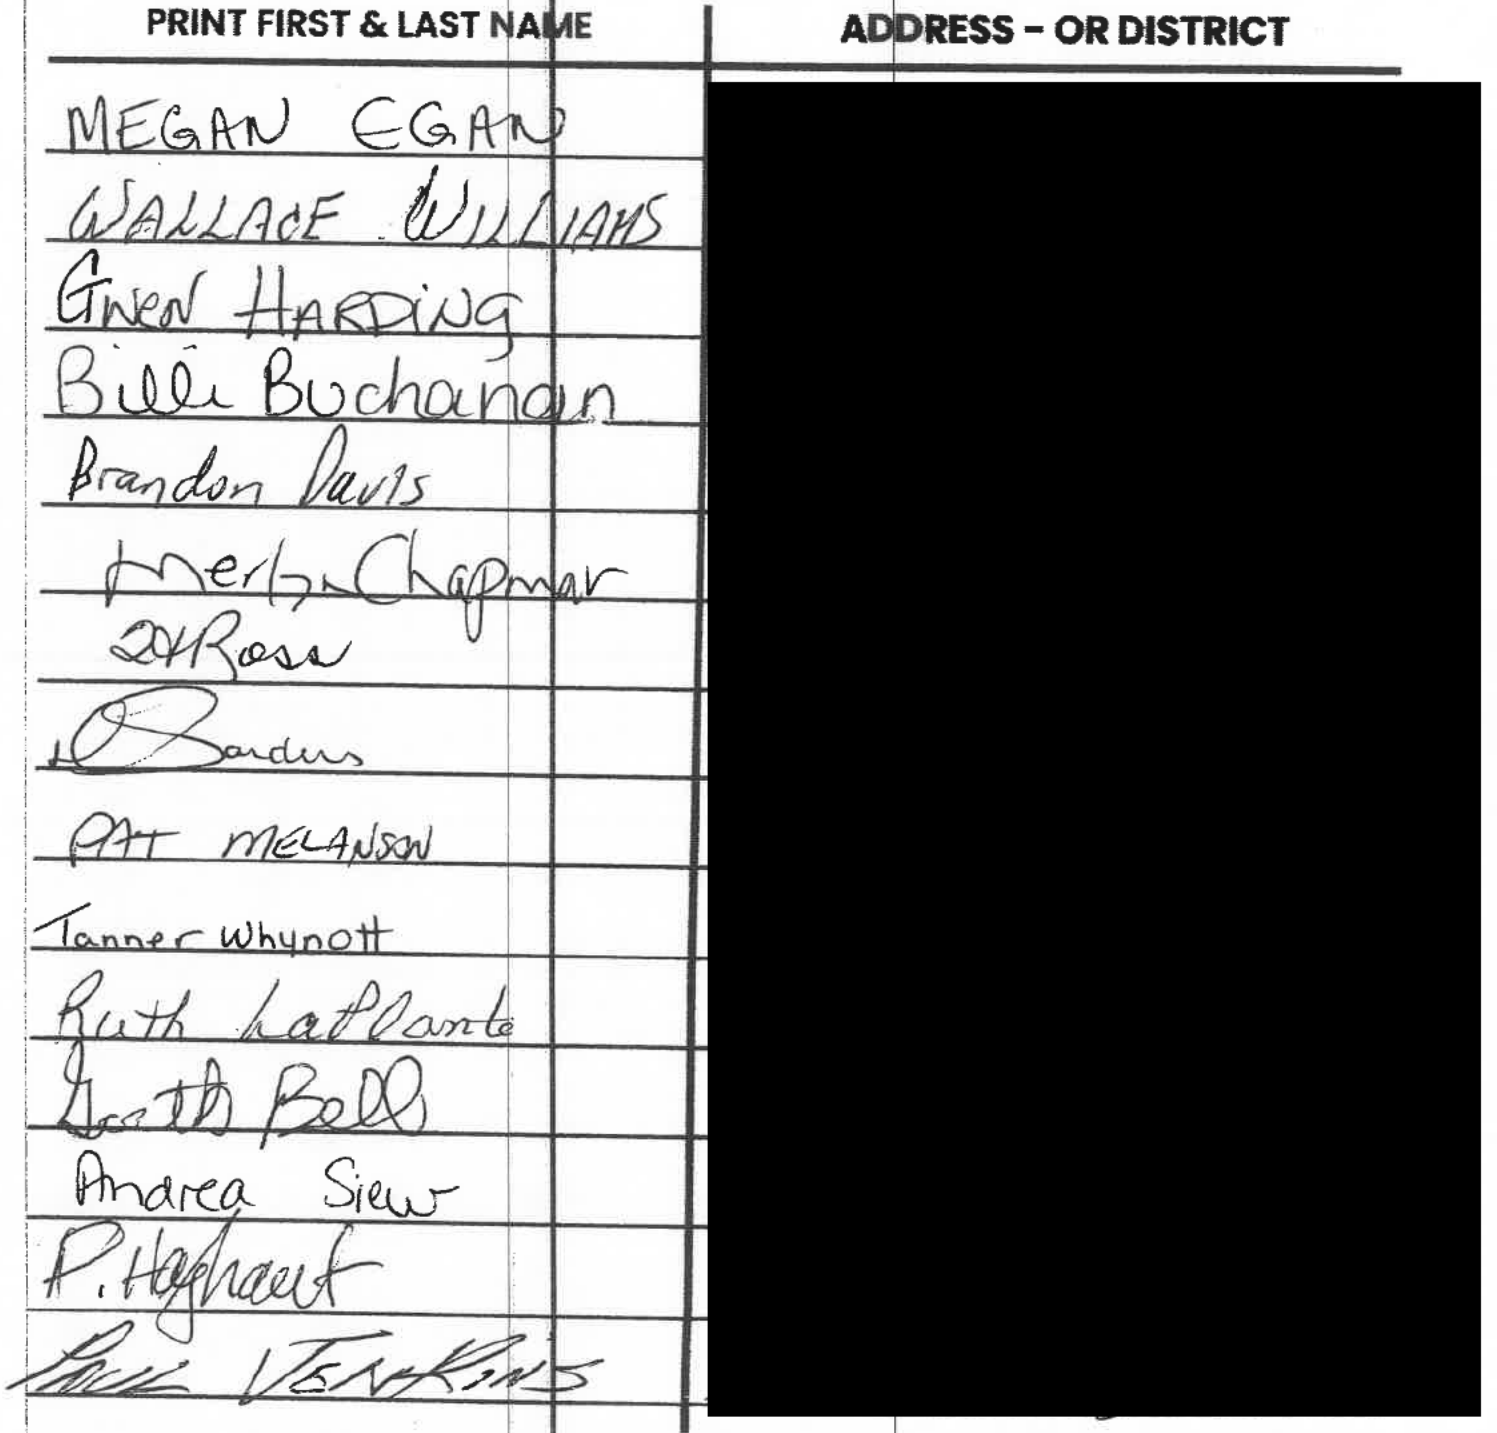 PRINT FIRST & LAST NAME ADDRESS – OR DISTRICT
MEGAN EGAN
WALLACE WILLIAMS
Gwen HARDiNg
Billi Buchanan
Brandon Davis
Chapman
Ross
Sanders
PAT MELANSON
Tanner Whynott
Ruth LaPlante
Garth Bell
Andrea Siew
P.
PAUL JENKINS